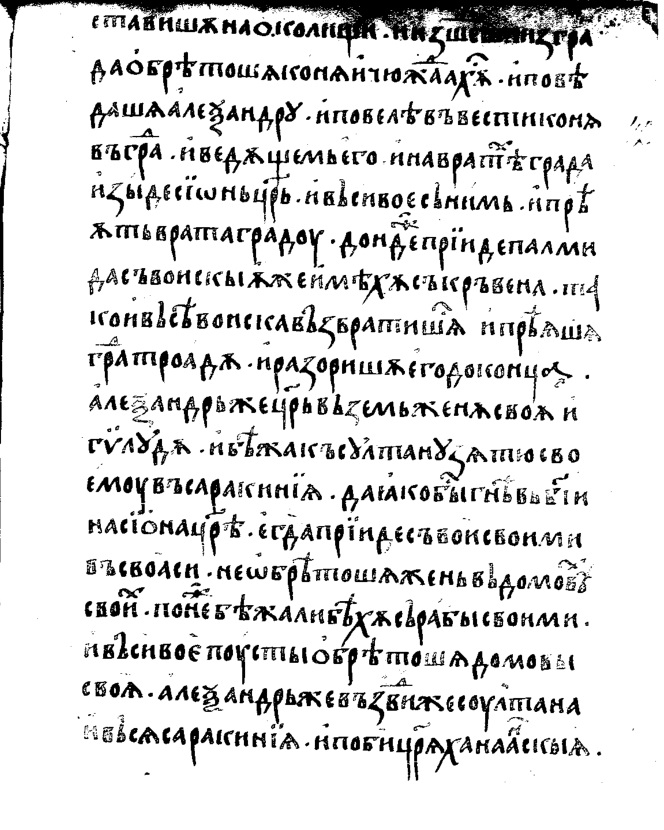 ставишѧ на околищи · и изшедши из гра
да обрѣтошѧ конѧ и чюждаахѫсѧ · и повѣ
дашѧ алеѯандру · и повелѣ въвести конѧ
въ гра · и ведѫщемь его · и на вратѣ града
изыде сїѡнь црь · и вьси вое сь нимь · и прѣ
ѫть врата градоу · дондеже прїиде палми
да съ воискыѫ ѫже имѣхѫ съкръвена · та
ко и вьсѣ воиска възвратишѧ и прѣѧшѧ
гра троадѫ · и разоришѧ его до конца ·
алеѯандрь же црь въземь женѫ своѫ и
гїлудѫ · и бѣжа къ султану зѧтю сво
емоу въ саракинїѫ · да ꙗко бы гнѣвь
на сїѡна црѣ · егда прїиде съ вои своими
въ своаси · не ѡбрѣтошѧ жень вь домовѣ
свои · понеже бѣжали бѣхѫ сь рабы своими ·
и вьси вое поусты обрѣтошѧ домовы
своѧ · алеѯандрь же въздвиже соултана
и вьсѧ саракинїѧ · и поби црѧ ханаанскыѧ ·